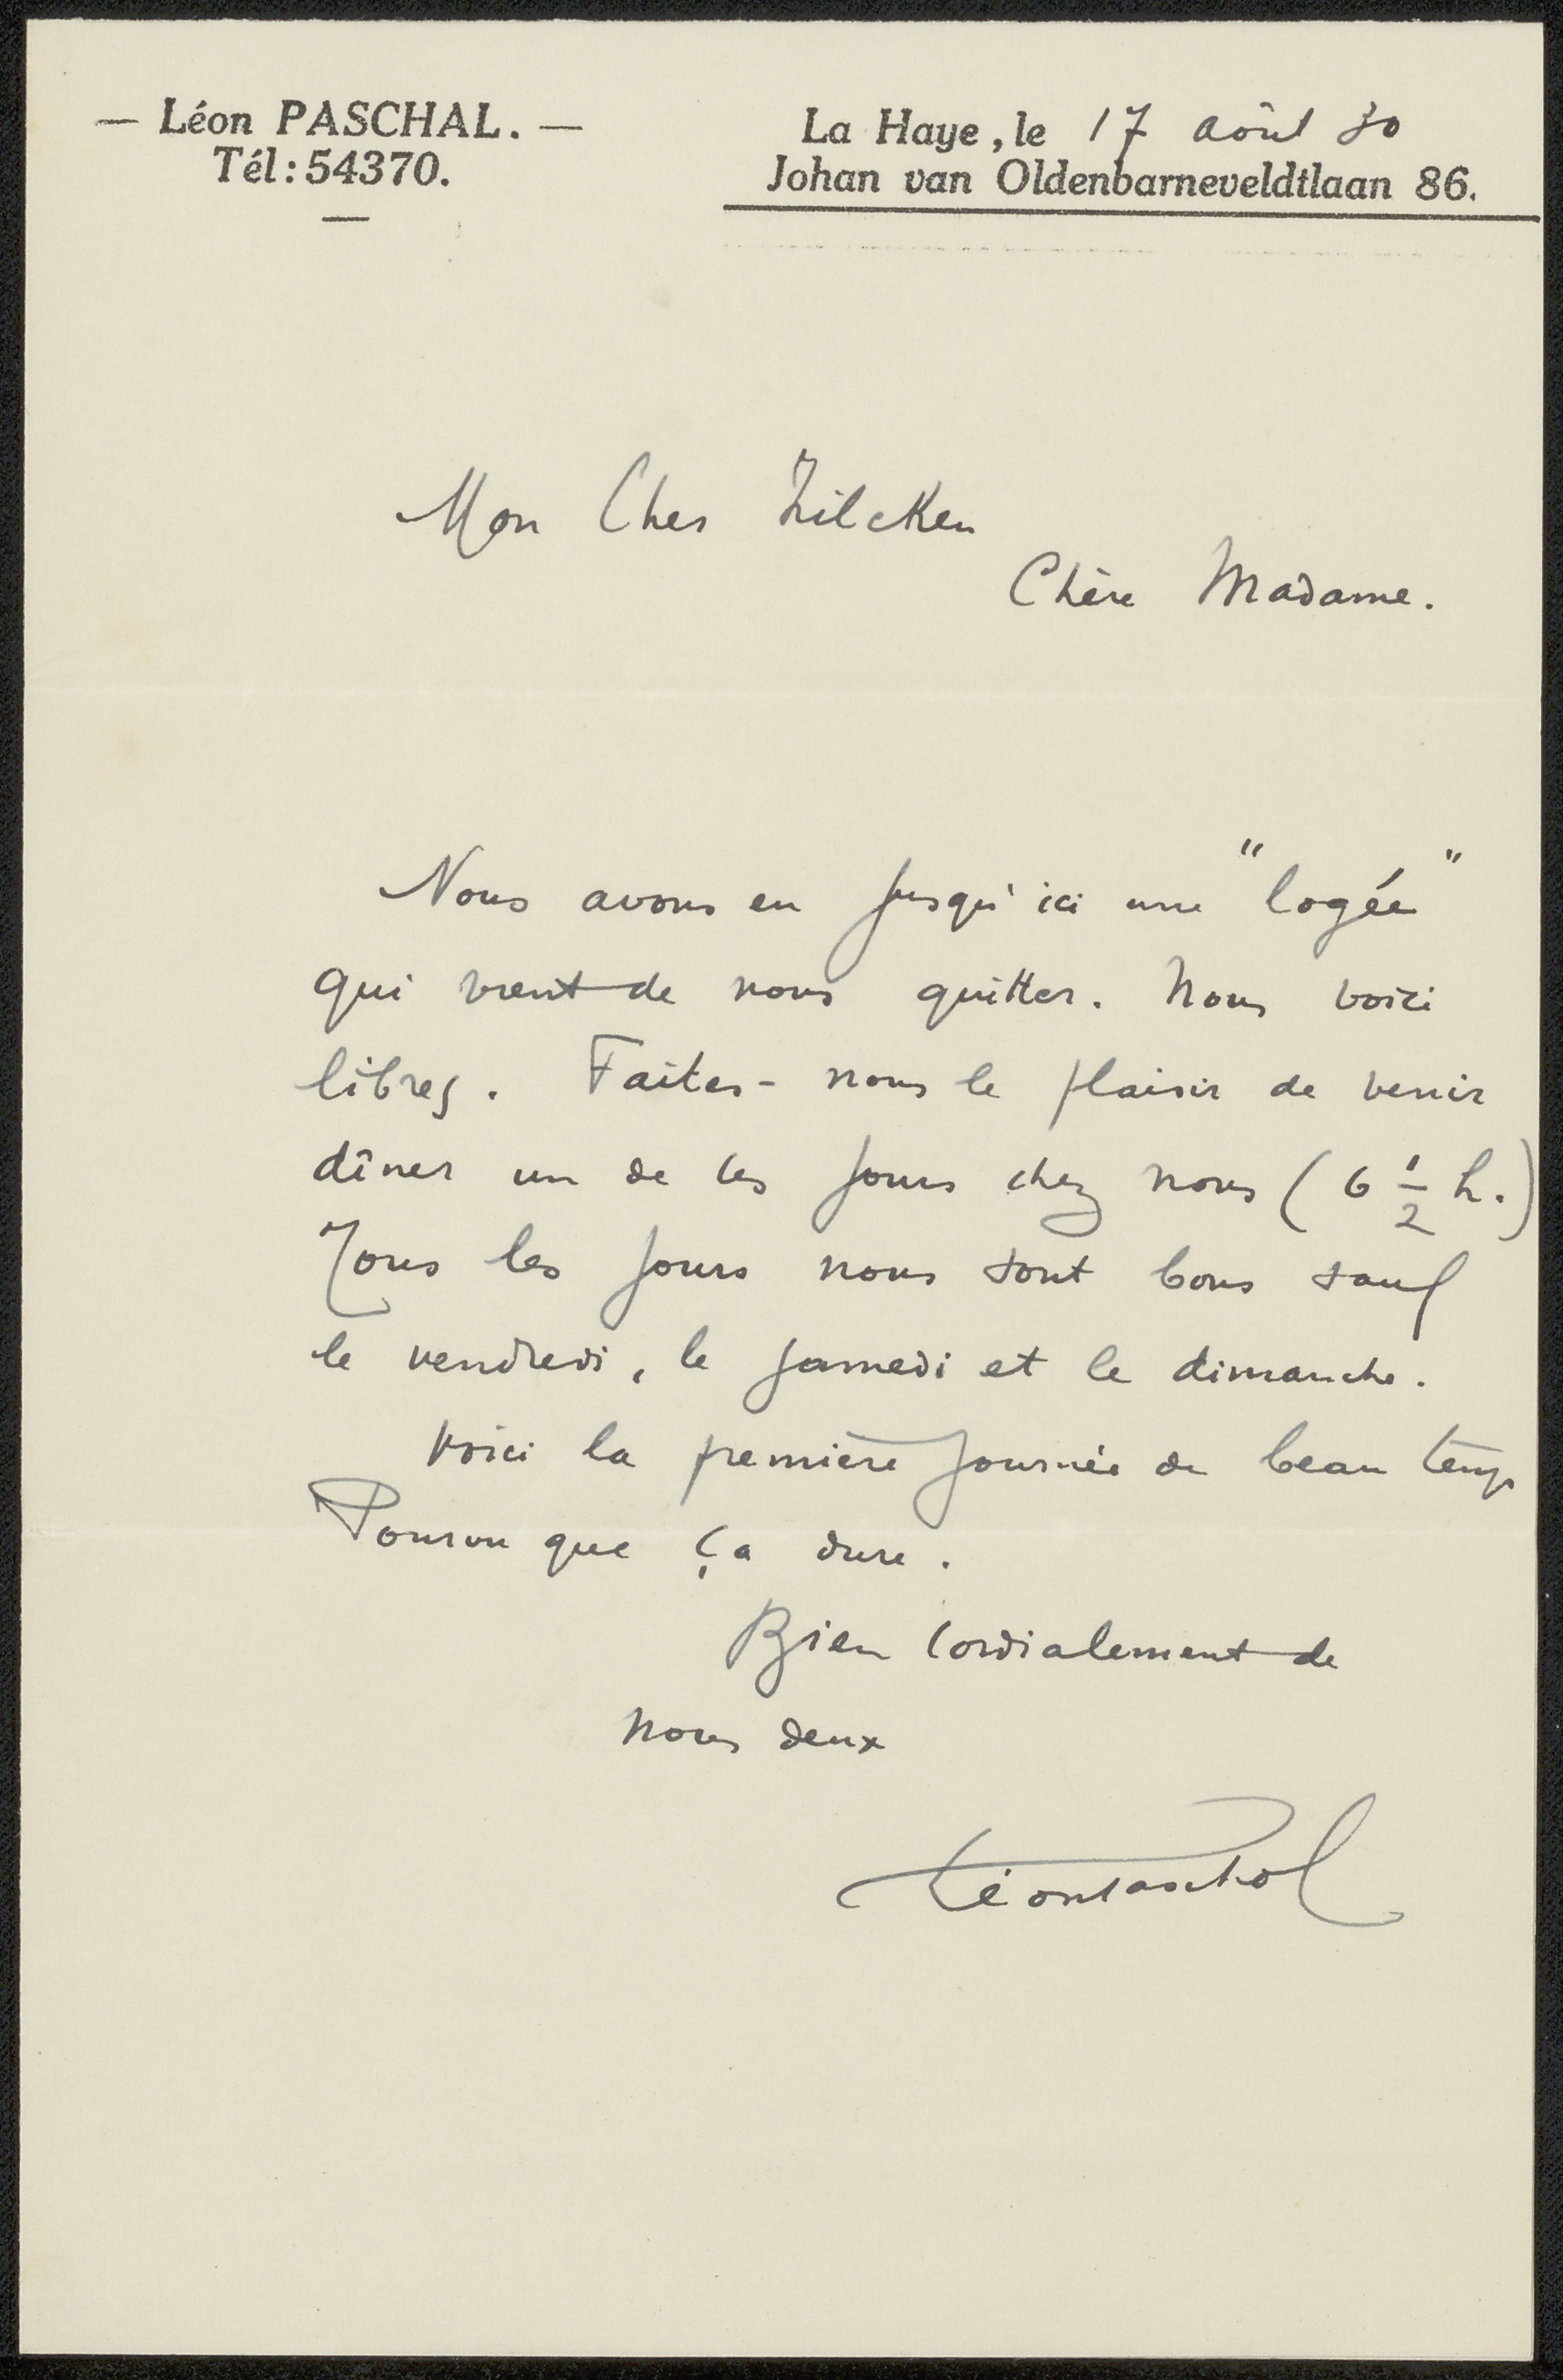 — Léon PASCHAL. —
Tél: 54370.
La Haye, le 17 août 30
Johan van Oldenbarneveldtlaan 86.
Mon Cher Zilcken
Chère Madame.
Nous avons eu jusqu'ici une "logée"
qui vient de nous quitter. Nous voici
libres. Faites-nous le plaisir de venir
dîner un de ces jours chez nous (6 1/2 h.)
Tous les jours nous sont bons sauf
le vendredi, le samedi et le dimanche.
Voici la première journée de beau temps
Pourvu que ça dure.
Bien cordialement de
nous deux
Léon Paschal